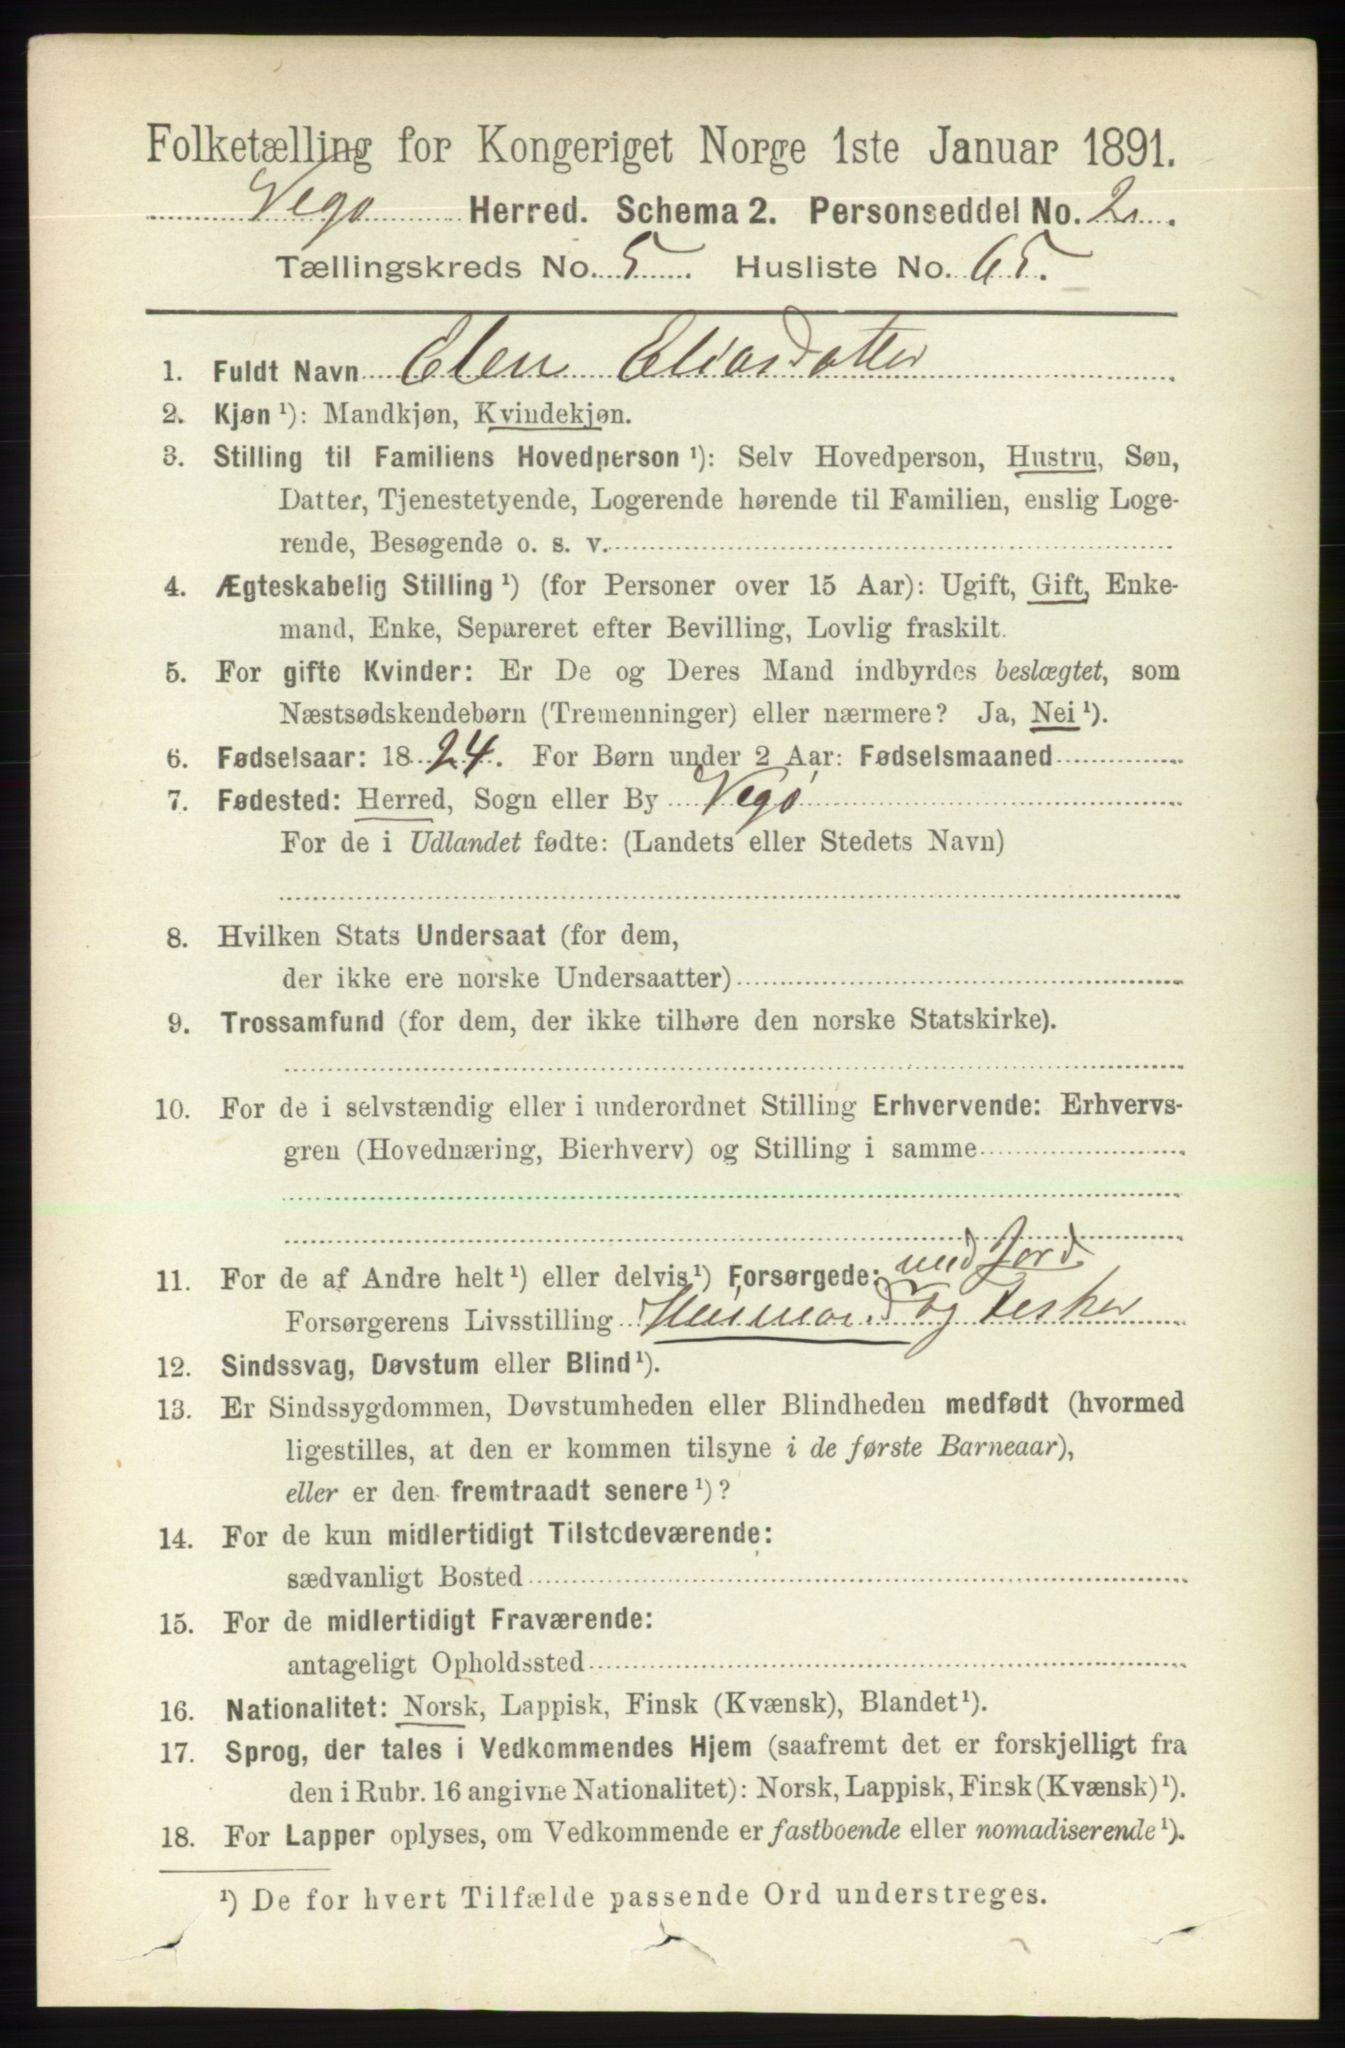 Folketælling for Kongeriget Norge 1ste Januar 1891.
Vegø Herred. Schema 2. Personseddel No. 2.
Tællingskreds No. 5. Husliste No. 65.
1. Fuldt Navn Elen Eliasdatter
2. Kjøn ¹): Mandkjøn, Kvindekjøn.
3. Stilling til Familiens Hovedperson ¹): Selv Hovedperson, Hustru, Søn,
Datter, Tjenestetyende, Logerende hørende til Familien, enslig Loge-
rende, Besøgende o. s. v.
4. Ægteskabelig Stilling ¹) (for Personer over 15 Aar): Ugift, Gift, Enke-
mand, Enke, Separeret efter Bevilling, Lovlig fraskilt.
5. For gifte Kvinder: Er De og Deres Mand indbyrdes beslægtet, som
Næstsødskendebørn (Tremenninger) eller nærmere? Ja, Nei ¹).
6. Fødselsaar: 1824. For Børn under 2 Aar: Fødselsmaaned
7. Fødested: Herred, Sogn eller By Vegø
For de i Udlandet fødte: (Landets eller Stedets Navn)
8. Hvilken Stats Undersaat (for dem,
der ikke ere norske Undersaatter)
9. Trossamfund (for dem, der ikke tilhøre den norske Statskirke).
10. For de i selvstændig eller i underordnet Stilling Erhvervende: Erhvervs-
gren (Hovednæring, Bierhverv) og Stilling i samme
med Jord
11. For de af Andre helt ¹) eller delvis ¹) Forsørgede:
Forsørgerens Livsstilling Husmand og Fisker
12. Sindssvag, Døvstum eller Blind ¹).
13. Er Sindssygdommen, Døvstumheden eller Blindheden medfødt (hvormed
ligestilles, at den er kommen tilsyne i de første Barneaar),
eller er den fremtraadt senere ¹)?
14. For de kun midlertidigt Tilstedeværende:
sædvanligt Bosted
15. For de midlertidigt Fraværende:
antageligt Opholdssted
16. Nationalitet: Norsk, Lappisk, Finsk (Kvænsk), Blandet ¹).
17. Sprog, der tales i Vedkommendes Hjem (saafremt det er forskjelligt fra
den i Rubr. 16 angivne Nationalitet): Norsk, Lappisk, Finsk (Kvænsk) ¹).
18. For Lapper oplyses, om Vedkommende er fastboende eller nomadiserende ¹).
¹) De for hvert Tilfælde passende Ord understreges.